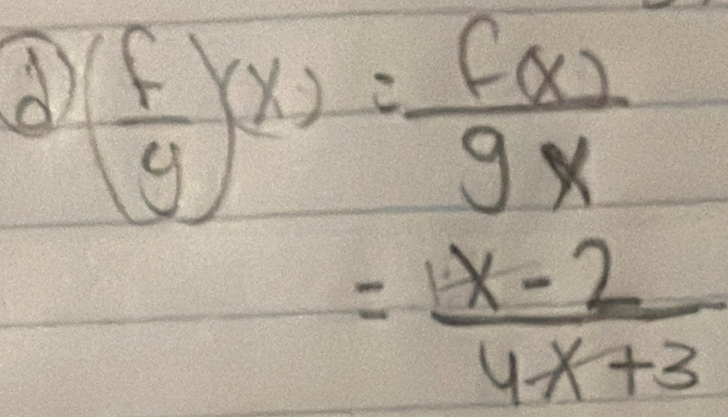 d) (f/g)(x) = f(x)/gx
= x-2/4x+3